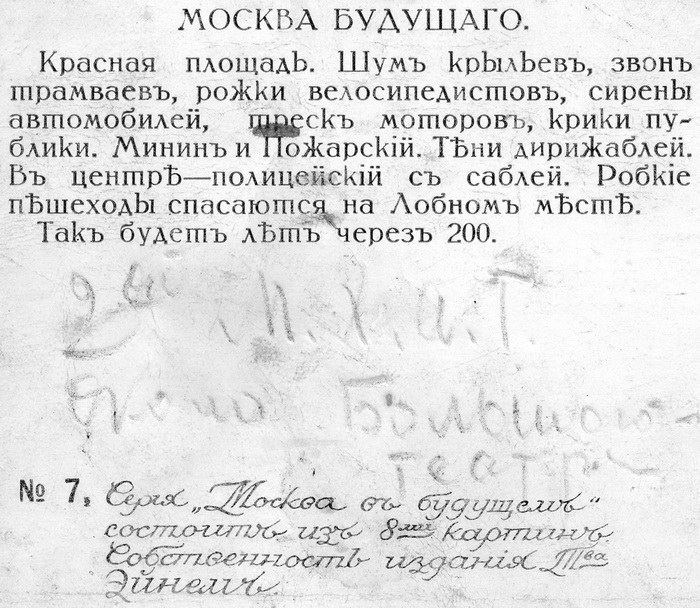 МОСКВА БУДУЩАГО.
Красная площадь. Шумъ крыльевъ, звонъ
трамваевъ, рожки велосипедистовъ, сирены
автомобилей, трескъ моторовъ, крики пу-
блики. Мининъ и Пожарскій. Тѣни дирижаблей.
Въ центрѣ—полицейскій съ саблей. Робкіе
пѣшеходы спасаются на Лобномъ мѣстѣ.
Такъ будетъ лѣтъ черезъ 200.
2ой М.Х.А.Т.
Около Большого
театр
№ 7, Серія „Москва въ будущемъ“
состоитъ изъ 8ми картинъ.
Собственность изданія Тва
Эйнемъ.